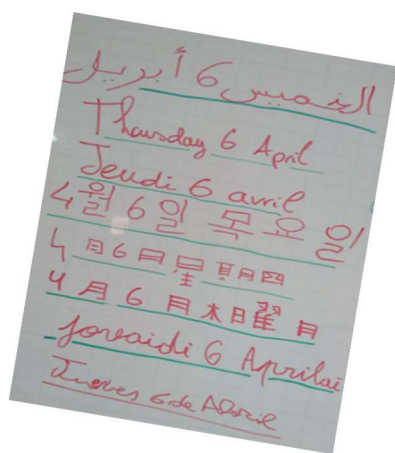 الخميس 6 أبريل
Thursday 6 April
Jeudi 6 avril
4월 6일 목요일
4月6日星期四
4月6月木日曜日
Jovaidi 6 Aprilai
Jueves 6 de Abril